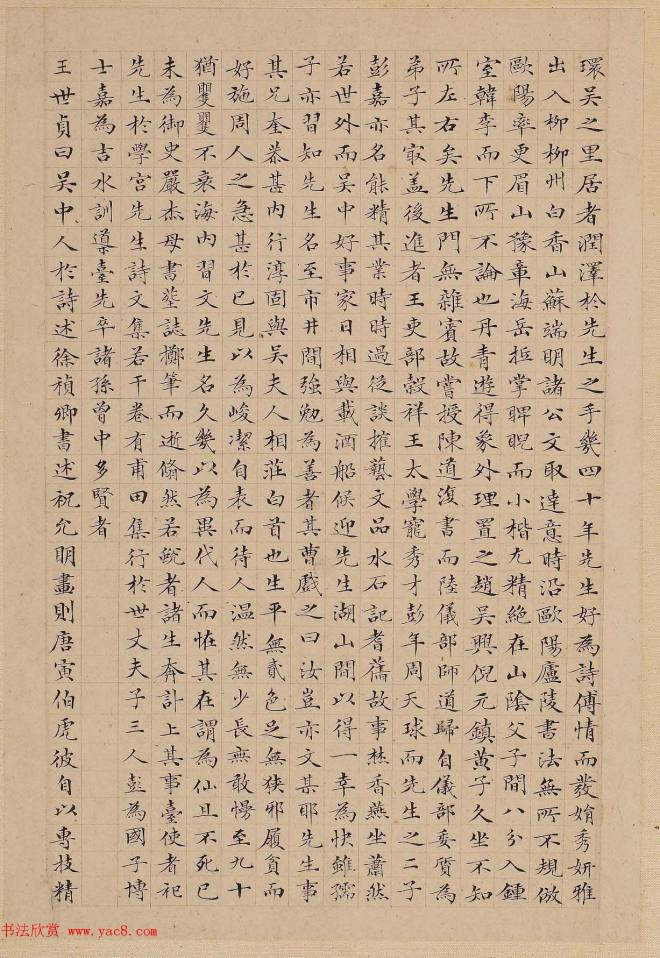 環吳之里居者潤澤於先生之手幾四十年先生好為詩傅情而發娟秀妍雅
出入柳柳州白香山蘇端明諸公文取達意時沿歐陽廬陵書法無所不規倣
歐陽率更眉山豫章海岳抵掌睥睨而小楷尤精絕在山陰父子間八分入鍾
室韓李而下所不論也丹青遊得象外理置之趙吳興倪元鎮黃子久坐不知
所左右矣先生門無雜賓故嘗授陳道復書而陸儀部師道歸自儀部委質為
弟子其冣蓋後進者王吏部穀祥王太學寵秀才彭年周天球而先生之二子
彭嘉亦名能精其業時時過從談搉藝文品水石記耆舊故事焚香燕坐蕭然
若世外而吳中好事家日相與載酒船候迎先生湖山間以得一幸為快雖孺
子亦習知先生名至市井間強勉為善者其曹戲之曰汝豈亦文某耶先生事
其兄奎恭甚內行淳固與吳夫人相莊白首也生平無貳色足無狹邪履貧而
好施周人之急甚於己見以為峻潔自表而待人温然無少長無敢慢至九十
猶矍矍不衰海內習文先生名久幾以為異代人而怪其在謂為仙且不死已
未為御史嚴杰母書墓誌擲筆而逝翛然若蛻者諸生奔計上其事臺使者祀
先生於學宮先生詩文集若干卷有甫田集行於世丈夫子三人彭為國子博
士嘉為吉水訓導臺先卒諸孫曾中多賢者
王世貞曰吳中人於詩述徐禎卿書述祝允明畫則唐寅伯虎彼自以專技精
书法欣赏 www.yac8.com